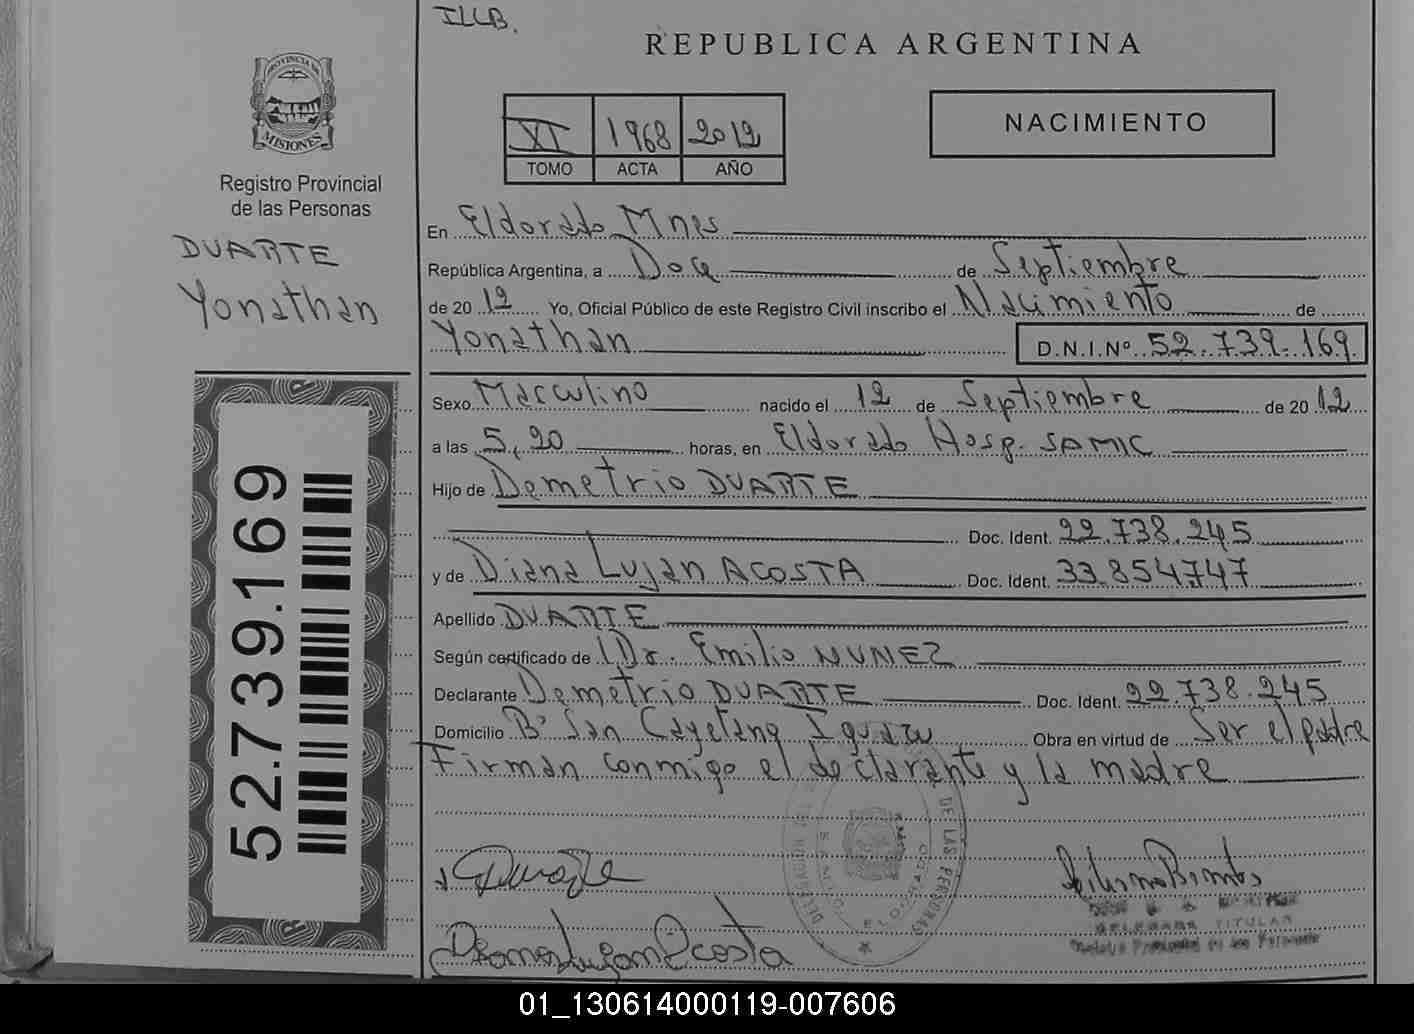 ILLB.
REPUBLICA ARGENTINA
PROVINCIA DE
MISIONES
Registro Provincial
de las Personas
DUARTE
Yonathan
XI 1968 2012
TOMO ACTA AÑO
NACIMIENTO
En Eldorado Mnes
República Argentina, a Doce de Septiembre
de 20 12 Yo, Oficial Público de este Registro Civil inscribo el Nacimiento de
Yonathan D.N.I.Nº 52.739.169
Sexo Masculino nacido el 12 de Septiembre de 20 12
a las 5,20 horas, en Eldorado Hosp. SAMIC
Hijo de Demetrio DUARTE
Doc. Ident. 22.738.245
y de Diana Lujan ACOSTA Doc. Ident. 33.854747
Apellido DUARTE
Según certificado de Dr. Emilio NUNEZ
Declarante Demetrio DUARTE Doc. Ident. 22.738.245
Domicilio Bº San Cayetano Iguazu Obra en virtud de Ser el padre
Firman conmigo el declarante y la madre
52.739.169
Duarte
DE LAS PERSONAS
ELDORADO
Diana Lujan Acosta
DELEGADA TITULAR
01_130614000119-007606